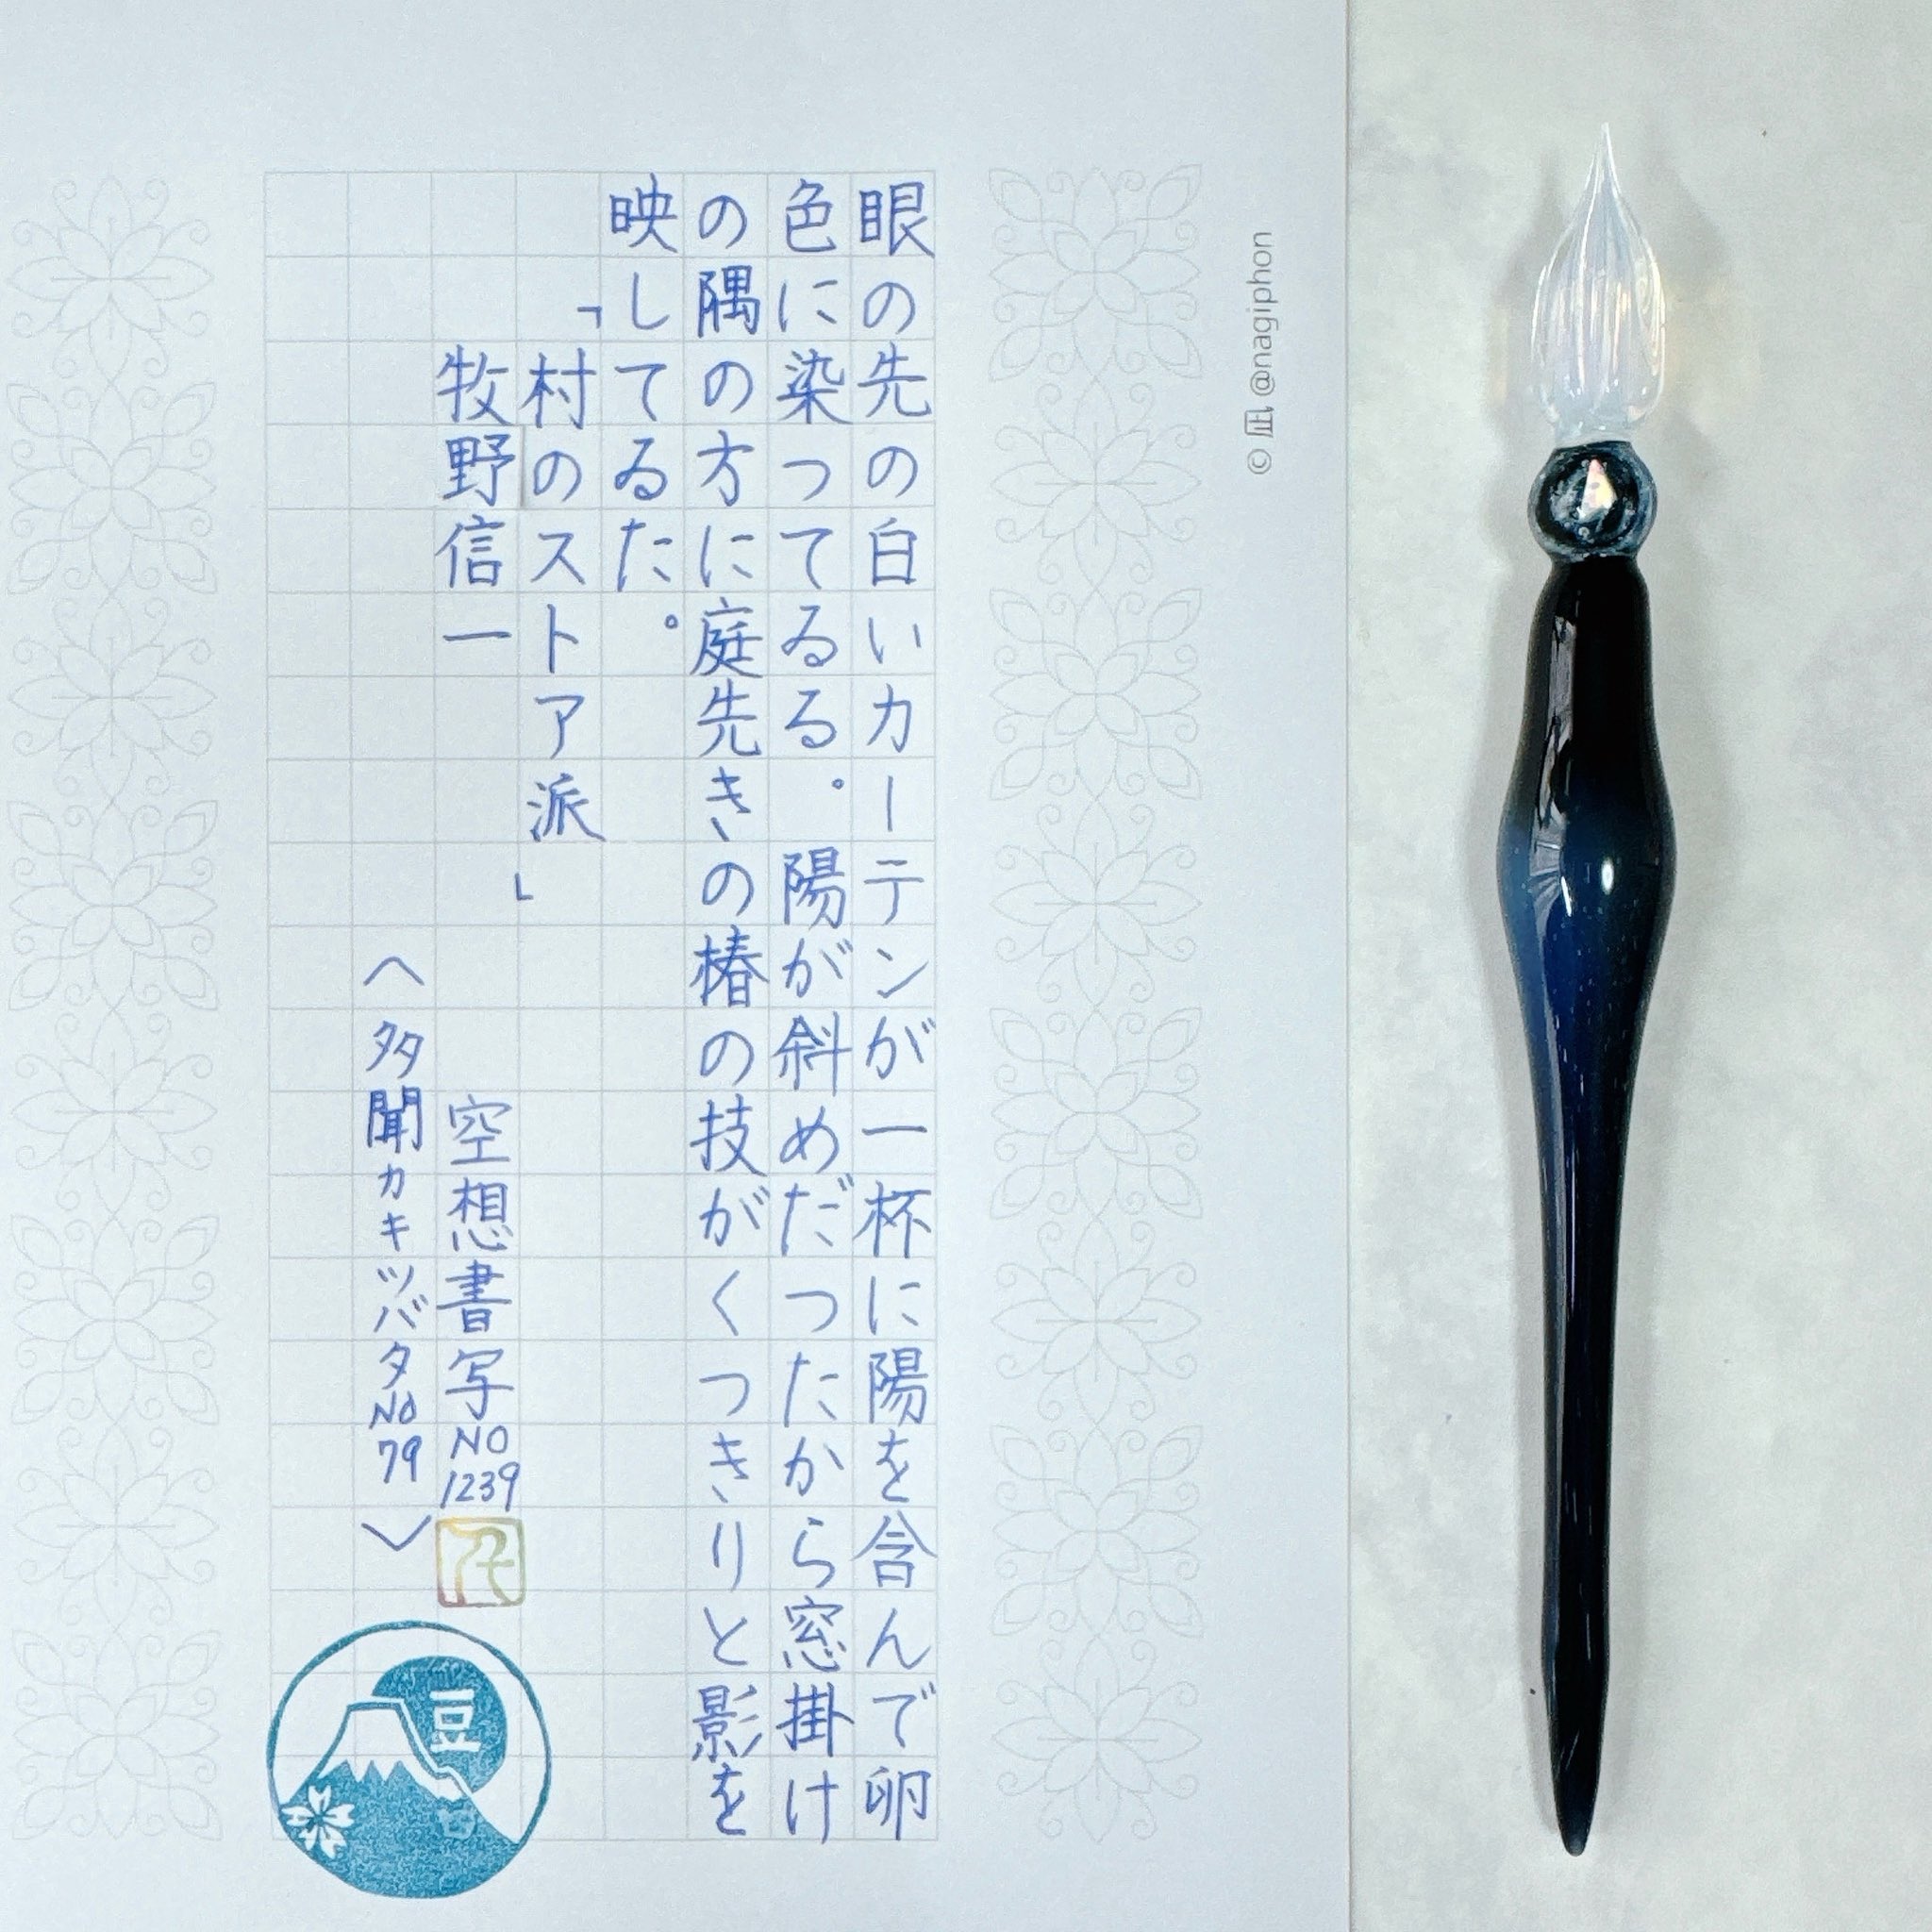 © 凪 @nagiphon
眼の先の白いカーテンが一杯に陽を含んで卵
色に染つてゐる。陽が斜めだつたから窓掛け
の隅の方に庭先きの椿の技がくつきりと影を
映してゐた。
「村のストア派」
牧野信一　空想書写NO1239
〈多聞カキツバタNo79〉
豆